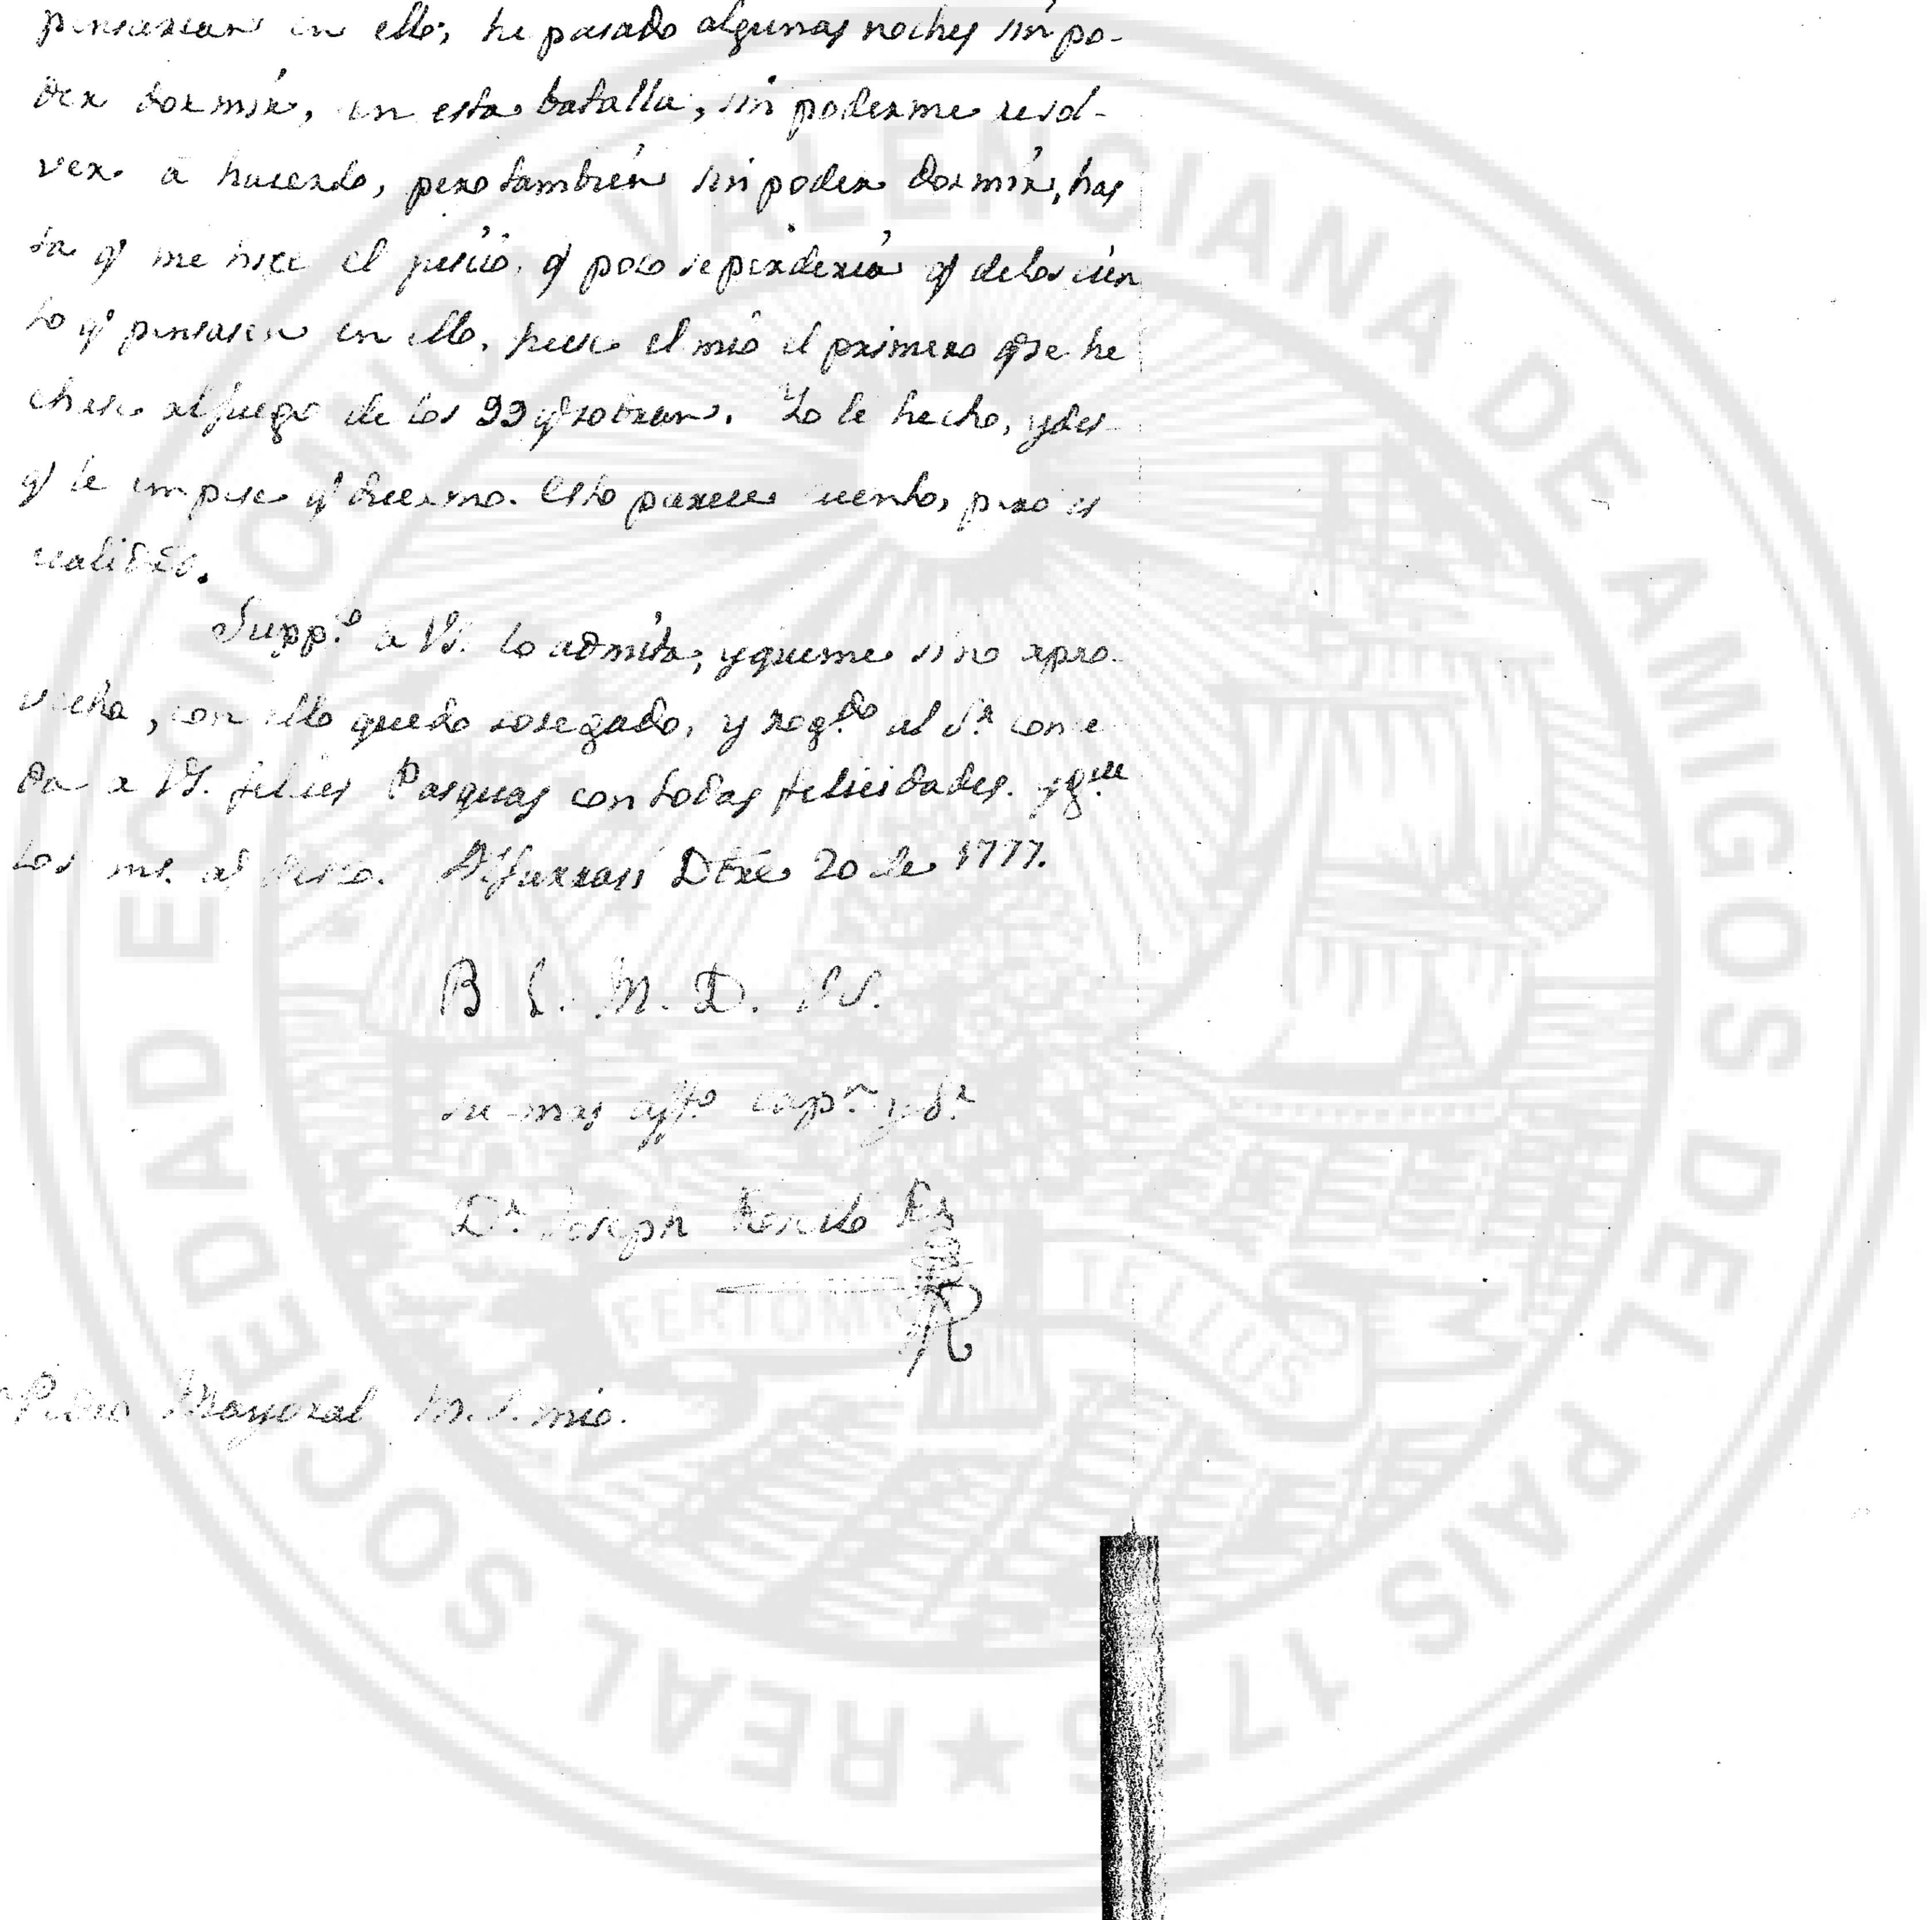 pensarian en ello; he pasado algunas noches sin po-
der dormir, en esta batalla, sin poderme resol-
ver à hacerlo, pero tambien sin poder dormir, has
ta q.e me hice el juicio, q.e poco se perderia q.e de los cien
to q.e pensasen en ello, fuese el mio el primero q.e se he
chase al fuego de los 99 q.e sobran. Lo he hecho, y des
q.e le empese q.e duermo. Esto parece cuento, pero es
realidad.
Supp.co a VS. lo admita, y queme si no apro-
vecha, con ello quedo sosegado, y rog.do al S.r conce
da a VS. felices Pasquas con todas felicidades. y g.ue
los m.s a.s Dtre 20 de 1777.
B. L. M. D. VS.
su mas aff.to cap.n y S.r
D.r Joseph
Pedro Mayoral M. S. mio.
REAL SOCIEDAD ECONOMICA VALENCIANA DE AMIGOS DEL PAIS 1776